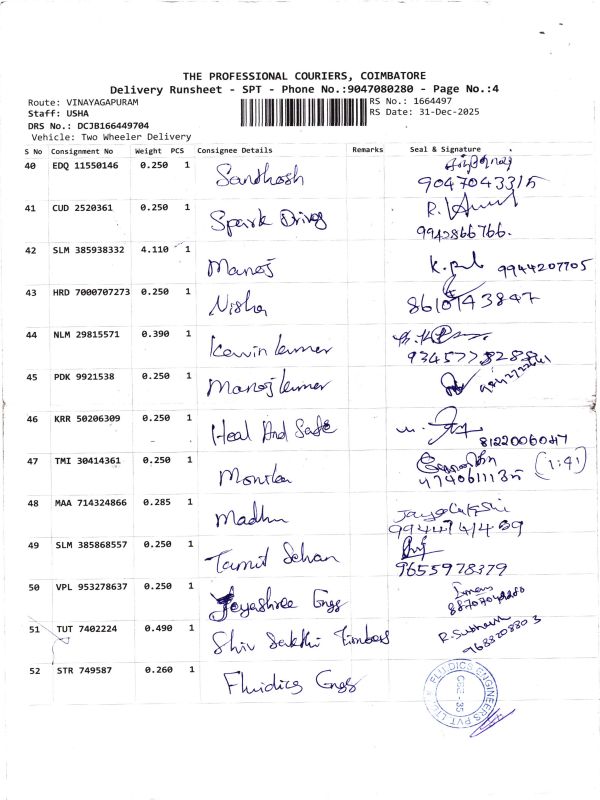 THE PROFESSIONAL COURIERS, COIMBATORE
Delivery Runsheet - SPT - Phone No.:9047080280 - Page No.:4
Route: VINAYAGAPURAM
RS No.: 1664497
Staff: USHA
RS Date: 31-Dec-2025
DRS No.: DCJB166449704
Vehicle: Two Wheeler Delivery
S No Consignment No Weight PCS Consignee Details Remarks Seal & Signature
40 EDQ 11550146 0.250 1 Santhosh
9047043315
41 CUD 2520361 0.250 1 Spark Drives
9942866766.
42 SLM 385938332 4.110 1 Manoj 9944207705
43 HRD 7000707273 0.250 1 Nisha
44 NLM 29815571 0.390 1 Kavin kumar
45 PDK 9921538 0.250 1 Manoj kumar
46 KRR 50206309 0.250 1 Heal And Safe
8122006047
47 TMI 30414361 0.250 1 Monika (1:41)
48 MAA 714324866 0.285 1 Madhu
49 SLM 385868557 0.250 1 Tamil Selvan
9655978379
50 VPL 953278637 0.250 1 Jeyashree Enggs
51 TUT 7402224 0.490 1 Shiv Sakthi Timbers
52 STR 749587 0.260 1 Fluidics Enggs
FLUIDICS ENGINEERS PVT LTD